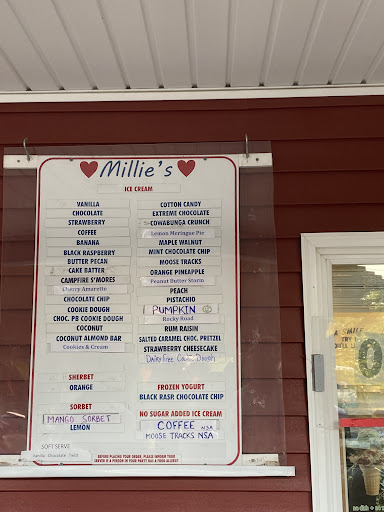 Millie's
ICE CREAM
VANILLA
CHOCOLATE
STRAWBERRY
COFFEE
BANANA
BLACK RASPBERRY
BUTTER PECAN
CAKE BATTER
CAMPFIRE S'MORES
Cherry Amaretto
CHOCOLATE CHIP
COOKIE DOUGH
CHOC. PB COOKIE DOUGH
COCONUT
COCONUT ALMOND BAR
Cookies & Cream
COTTON CANDY
EXTREME CHOCOLATE
COWABUNGA CRUNCH
Lemon Meringue Pie
MAPLE WALNUT
MINT CHOCOLATE CHIP
MOOSE TRACKS
ORANGE PINEAPPLE
Peanut Butter Storm
PEACH
PISTACHIO
PUMPKIN
Rocky Road
RUM RAISIN
SALTED CARAMEL CHOC. PRETZEL
STRAWBERRY CHEESECAKE
Dairy Free Cookie Dough
SHERBET
ORANGE
SORBET
MANGO SORBET
LEMON
FROZEN YOGURT
BLACK RASP. CHOCOLATE CHIP
NO SUGAR ADDED ICE CREAM
COFFEE NSA
MOOSE TRACKS NSA
SOFT SERVE
Vanilla Chocolate Twist
BEFORE PLACING YOUR ORDER, PLEASE INFORM YOUR
SERVER IF A PERSON IN YOUR PARTY HAS A FOOD ALLERGY